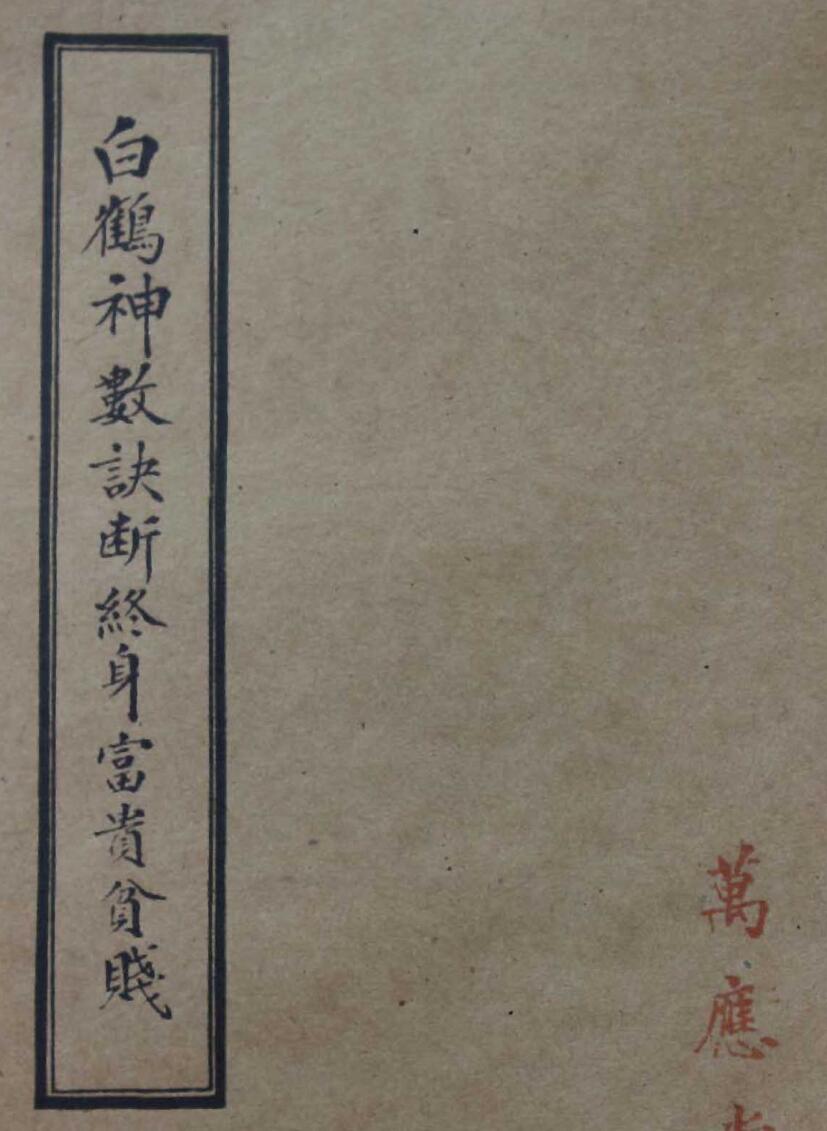 白鶴神數訣断終身富貴貧賤
萬應